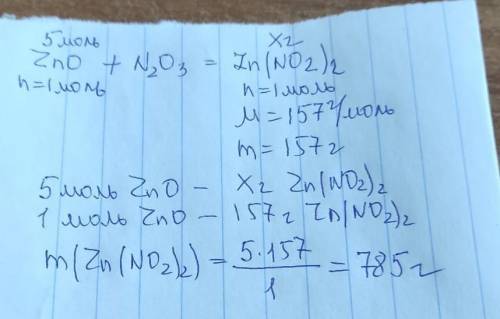 5 моль хг
ZnO + N₂O₃ = Zn(NO₂)₂
n=1моль n=1моль
M=157г/моль
m=157г
5 моль ZnO - хг Zn(NO₂)₂
1 моль ZnO - 157г Zn(NO₂)₂
m(Zn(NO₂)₂) = 5·157/1 = 785г